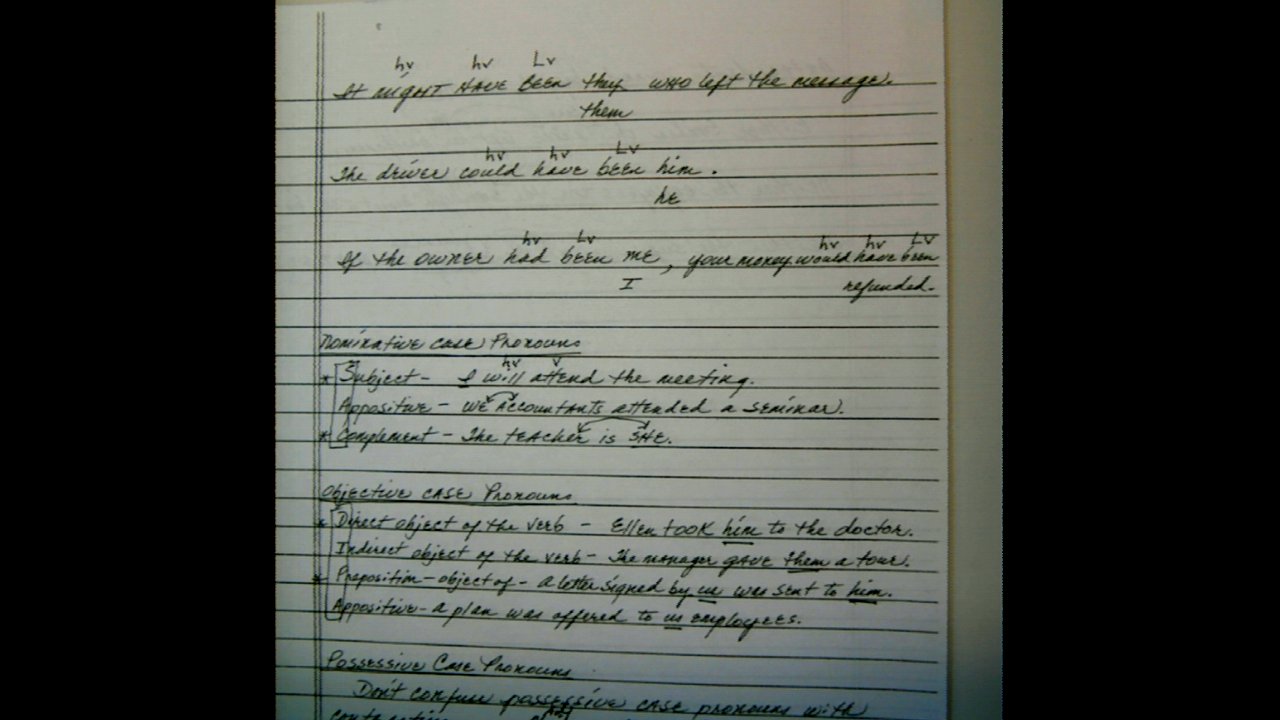 hv hv Lv
It might HAVE BEEN they who left the message.
them
hv hv Lv
The driver could have been him.
he
hv Lv hv hv Lv
If the owner had been me, your money would have been
I refunded.
Nominative case Pronouns
hv v
* Subject - I will attend the meeting.
Appositive - WE Accountants attended a seminar.
* Complement - The teacher is SHE.
Objective CASE Pronouns
* Direct object of the verb - Ellen took him to the doctor.
Indirect object of the verb - The manager gave them a tour.
* Preposition - object of - a letter signed by us was sent to him.
Appositive - a plan was offered to us employees.
Possessive Case Pronouns
Don't confuse possessive case pronouns with